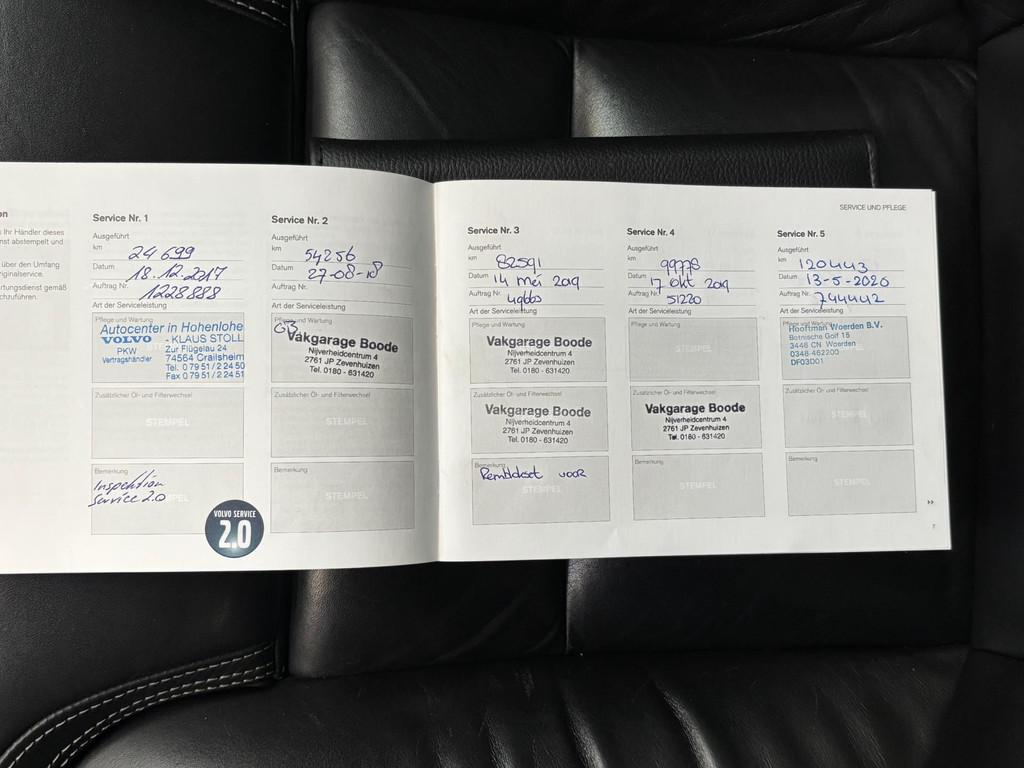 on
s Ihr Händler dieses
nst abstempelt und
über den Umfang
iginalservice.
rtungsdienst gemäß
chzuführen.
Service Nr. 1
Ausgeführt
km 24 699
Datum 18.12.2017
Auftrag Nr. 1228888
Art der Serviceleistung
Pflege und Wartung
Autocenter in Hohenlohe
VOLVO - KLAUS STOLL
PKW Zur Flügelau 24
Vertragshändler 74564 Crailsheim
Tel. 0 79 51 / 2 24 50
Fax 0 79 51 / 2 24 51
Zusätzlicher Öl- und Filterwechsel
STEMPEL
Bemerkung
Inspektion
Service 2.0
VOLVO SERVICE
2.0
Service Nr. 2
Ausgeführt
km 54256
Datum 27-08-18
Auftrag Nr.
Art der Serviceleistung
Pflege und Wartung
GB
Vakgarage Boode
Nijverheidcentrum 4
2761 JP Zevenhuizen
Tel. 0180 - 631420
Zusätzlicher Öl- und Filterwechsel
STEMPEL
Bemerkung
STEMPEL
SERVICE UND PFLEGE
Service Nr. 3
Ausgeführt
km 82591
Datum 14 mei 2019
Auftrag Nr.
Art der Serviceleistung
Pflege und Wartung
Vakgarage Boode
Nijverheidcentrum 4
2761 JP Zevenhuizen
Tel. 0180 - 631420
Zusätzlicher Öl- und Filterwechsel
Vakgarage Boode
Nijverheidcentrum 4
2761 JP Zevenhuizen
Tel. 0180 - 631420
Bemerkung
voor
STEMPEL
Service Nr. 4
Ausgeführt
km 99778
Datum 17 okt 2019
Auftrag Nr. 51220
Art der Serviceleistung
Pflege und Wartung
STEMPEL
Zusätzlicher Öl- und Filterwechsel
Vakgarage Boode
Nijverheidcentrum 4
2761 JP Zevenhuizen
Tel. 0180 - 631420
Bemerkung
STEMPEL
Service Nr. 5
Ausgeführt
km 120443
Datum 13-5-2020
Auftrag Nr. 744442
Art der Serviceleistung
Pflege und Wartung
Hooftman Woerden B.V.
Botnische Golf 15
3446 CN Woerden
0348-462200
DF03D01
Zusätzlicher Öl- und Filterwechsel
STEMPEL
Bemerkung
STEMPEL
7